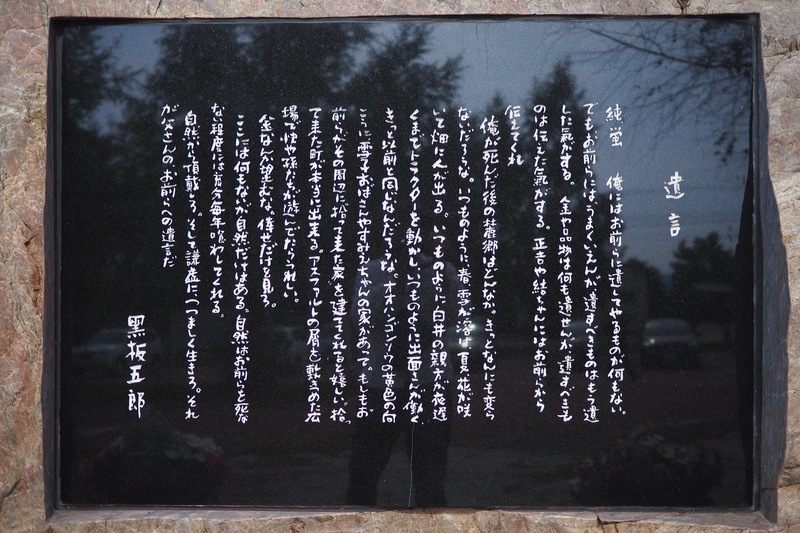 遺言
純 蛍 俺にはお前らに遺してやるものが何もない。
でもお前らにはうまくいえんが遺すべきものはもう遺
した気がする。金や品物は何も遺せんが遺すべきも
のは伝えた気がする。正吉や結ちゃんにはお前らから
伝えてくれ
俺が死んだ後の麓郷はどんなか。きっとなんにも変ら
ないだろうな。いつものように春、雪が溶け夏、花が咲
いて畑に人が出る。いつものように白井の親方が夜遅
くまでトラクターを動かし、いつものように出面さんが働く
きっと以前と同じなんだろうな。オオハンゴンソウの黄色の向
こうに雪子おばさんやすみえちゃんの家があって。もしもお
前らがその周辺に拾って来た家を建ててくれると嬉しい。拾っ
て来た町が本当に出来る。アスファルトの屑を敷きつめた広
場で快や孫たちが遊んでたらうれしい。
金なんか望むな。倖せだけを見ろ。
ここには何もないが自然だけはある。自然はお前らを死な
ない程度には充分毎年喰わしてくれる。
自然から頂戴しろ。そして謙虚に、つつましく生きろ。それ
が父さんの、お前らへの遺言だ
黒板五郎